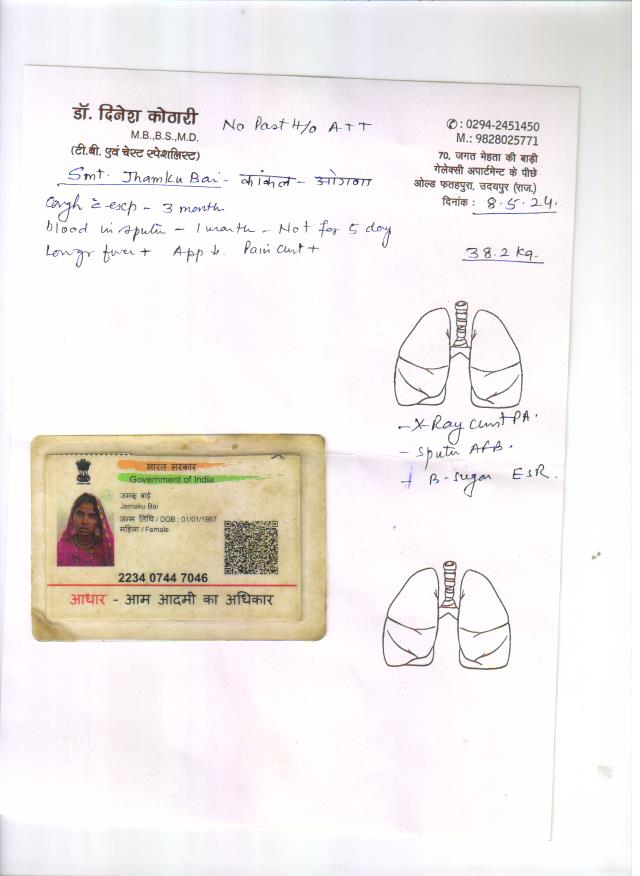 डॉ. दिनेश कोठारी
M.B.,B.S.,M.D.
(टी.बी. एवं चेस्ट स्पेशलिस्ट)
No Past H/o ATT
✆: 0294-2451450
M.: 9828025771
70, जगत मेहता की बाड़ी
गेलेक्सी अपार्टमेन्ट के पीछे
ओल्ड फतहपुरा, उदयपुर (राज.)
दिनांक : 8.5.24.
Smt. Jhamku Bai - कांकल - ओगणा
Cough c̄ exp - 3 month
blood in sputum - 1 month - Not for 5 day
fever + App ↓. Pain chest +
38.2 kg.
- X-Ray chest PA.
- Sputum AFB.
+ B-sugar ESR.
भारत सरकार
Government of India
जमकू बाई
Jamaku Bai
जन्म तिथि / DOB : 01/01/1987
महिला / Female
2234 0744 7046
आधार - आम आदमी का अधिकार